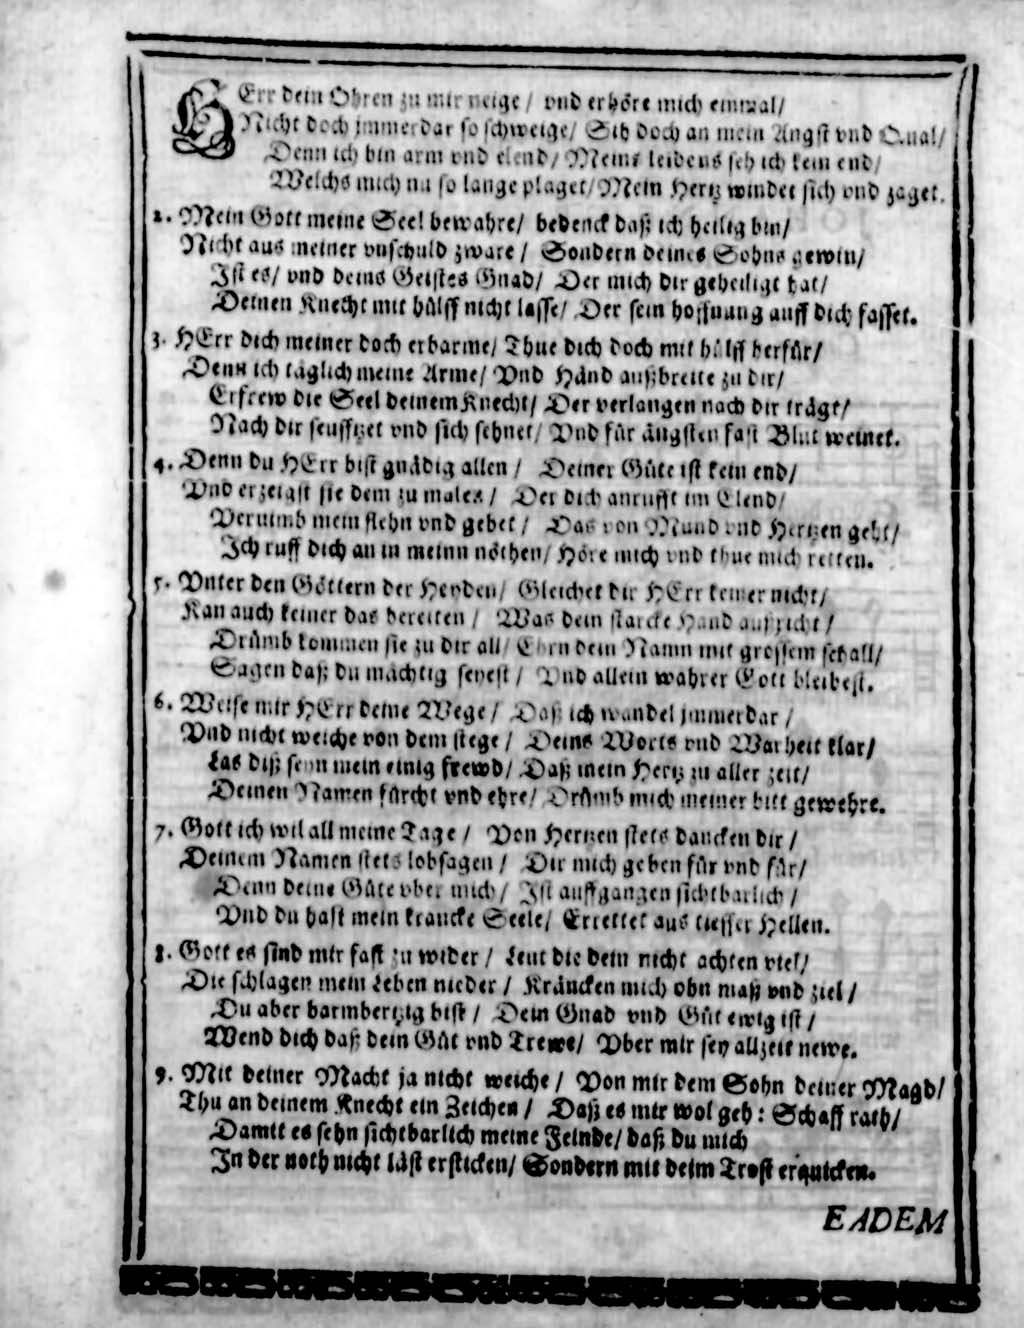 HErr dein Ohren zu mir neige / vnd erhöre mich einmal/
Nicht doch jmmerdar so schweige/ Sih doch an mein Angst vnd Qual/
Denn ich bin arm vnd elend/ Meins leidens seh ich kein end/
Welchs mich nu so lange plaget/ Mein Hertz windet sich vnd zaget.
2. Mein Gott meine Seel bewahre/ bedenck daß ich heilig bin/
Nicht aus meiner vnschuld zware / Sondern deines Sohns gewin/
Ist es/ vnd deins Geistes Gnad/ Der mich dir geheiligt hat/
Deinen Knecht mit hülff nicht lasse/ Der sein hoffnung auff dich fasset.
3. HErr dich meiner doch erbarme/ Thue dich doch mit hülff herfür/
Denn ich täglich meine Arme/ Vnd Händ außbreite zu dir/
Erfrew die Seel deinem Knecht/ Der verlangen nach dir trägt/
Nach dir seufftzet vnd sich sehnet/ Vnd für ängsten fast Blut weinet.
4. Denn du HErr bist gnädig allen / Deiner Güte ist kein end/
Vnd erzeigst sie dem zu malen / Der dich anrufft im Elend/
Vernimb mein flehn vnd gebet / Das von Mund vnd Hertzen geht/
Ich ruff dich an in meinn nöthen/ Höre mich vnd thue mich retten.
5. Vnter den Göttern der Heyden/ Gleichet dir HErr keiner nicht/
Kan auch keiner das bereiten / Was dein starcke Hand außricht /
Drümb kommen sie zu dir all/ Ehrn dein Namn mit grossem schall/
Sagen daß du mächtig seyest / Vnd allein wahrer Gott bleibest.
6. Weise mir HErr deine Wege / Daß ich wandel jmmerdar /
Vnd nicht weiche von dem stege / Deins Worts vnd Warheit klar/
Las diß seyn mein einig frewd/ Daß mein Hertz zu aller zeit/
Deinen Namen fürcht vnd ehre/ Drümb mich meiner bitt gewehre.
7. Gott ich wil all meine Tage / Von Hertzen stets dancken dir /
Deinem Namen stets lobsagen / Dir mich geben für vnd für/
Denn deine Güte vber mich / Ist auffgangen sichtbarlich /
Vnd du hast mein krancke Seele/ Errettet aus tieffer Hellen.
8. Gott es sind mir fast zu wider / Leut die dein nicht achten viel/
Die schlagen mein Leben nieder / Kräncken mich ohn maß vnd ziel /
Du aber barmhertzig bist / Dein Gnad vnd Güt ewig ist /
Wend dich daß dein Güt vnd Trewe/ Vber mir sey allzeit newe.
9. Mit deiner Macht ja nicht weiche / Von mir dem Sohn deiner Magd/
Thu an deinem Knecht ein Zeichen / Daß es mir wol geh: Schaff rath/
Damit es sehn sichtbarlich meine Feinde/ daß du mich
In der noth nicht läst ersticken/ Sondern mit deim Trost erquicken.
EADEM